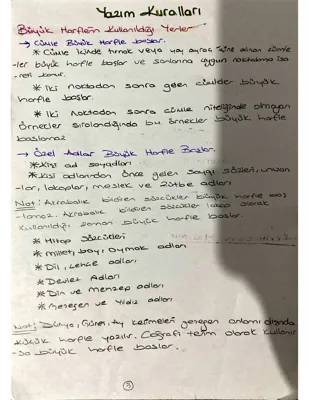 Yazım Kuralları
Büyük Harflerin Kullanıldığı Yerler
→ Cümle Büyük Harfle başlar.
* Cümle İçinde tırnak veya yay ayraç içine alınan cümle
-ler büyük harfle başlar ve sonlarına uygun noktalama işa
-reti konur.
* İki noktadan sonra gelen cümleler büyük
harfle başlar.
* İki Noktadan sonra cümle niteliğinde olmayan
örnekler sıralandığında bu örnekler büyük harfle
başlamaz
→ Özel Adlar Büyük Harfle Başlar.
* Kişi ad soyadları
* Kişi adlarından önce gelen saygı sözleri, unvan
-lar, lakaplar, meslek ve rütbe adları
Not: Akrabalık bildiren sözcükler büyük harfle baş
-lamaz. Akrabalık bildiren sözcükler lakap olarak
kullanıldığı zaman büyük harfle başlar.
* Hitap Sözcükleri
* Millet, boy, oymak adları
* Dil, Lehçe adları
* Devlet Adları
* Din ve menzep adları
* Gezegen ve Yıldız adları
Not: Dünya, Güneş, Ay kelimeleri gezegen anlamı dışında
küçük harfle yazılır. Coğrafi terim olarak kullanılır
-sa büyük harfle başlar.